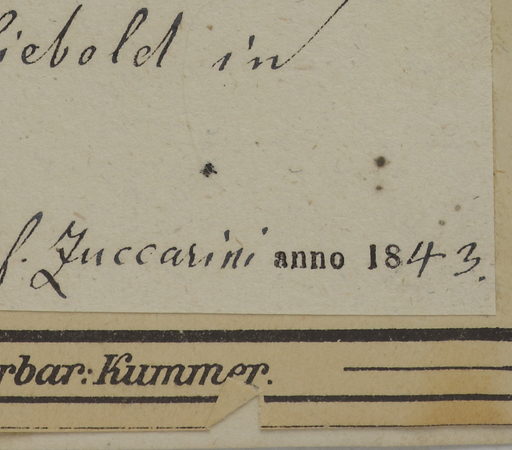 iebold in
f. Zuccarini anno 1843.
rbar: Kummer.